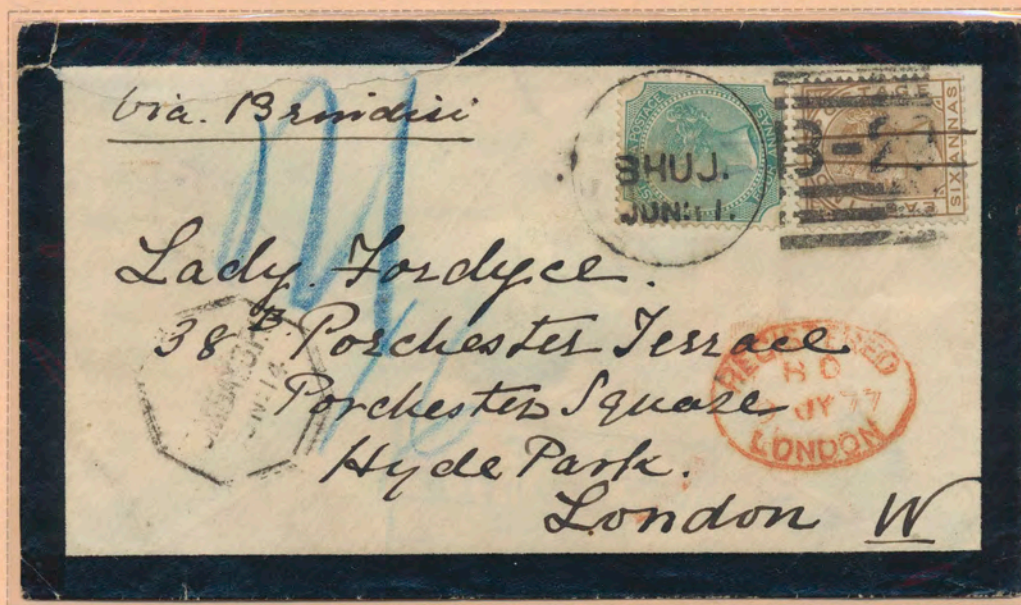 via. Brindisi
POSTAGE
ANNAS
SIX ANNAS
BHUJ.
JUN:11.
B-
Lady. Fordyce.
38 B. Porchester Terrace
Porchester Square
Hyde Park.
London W
REGISTERED
JY 77
LONDON